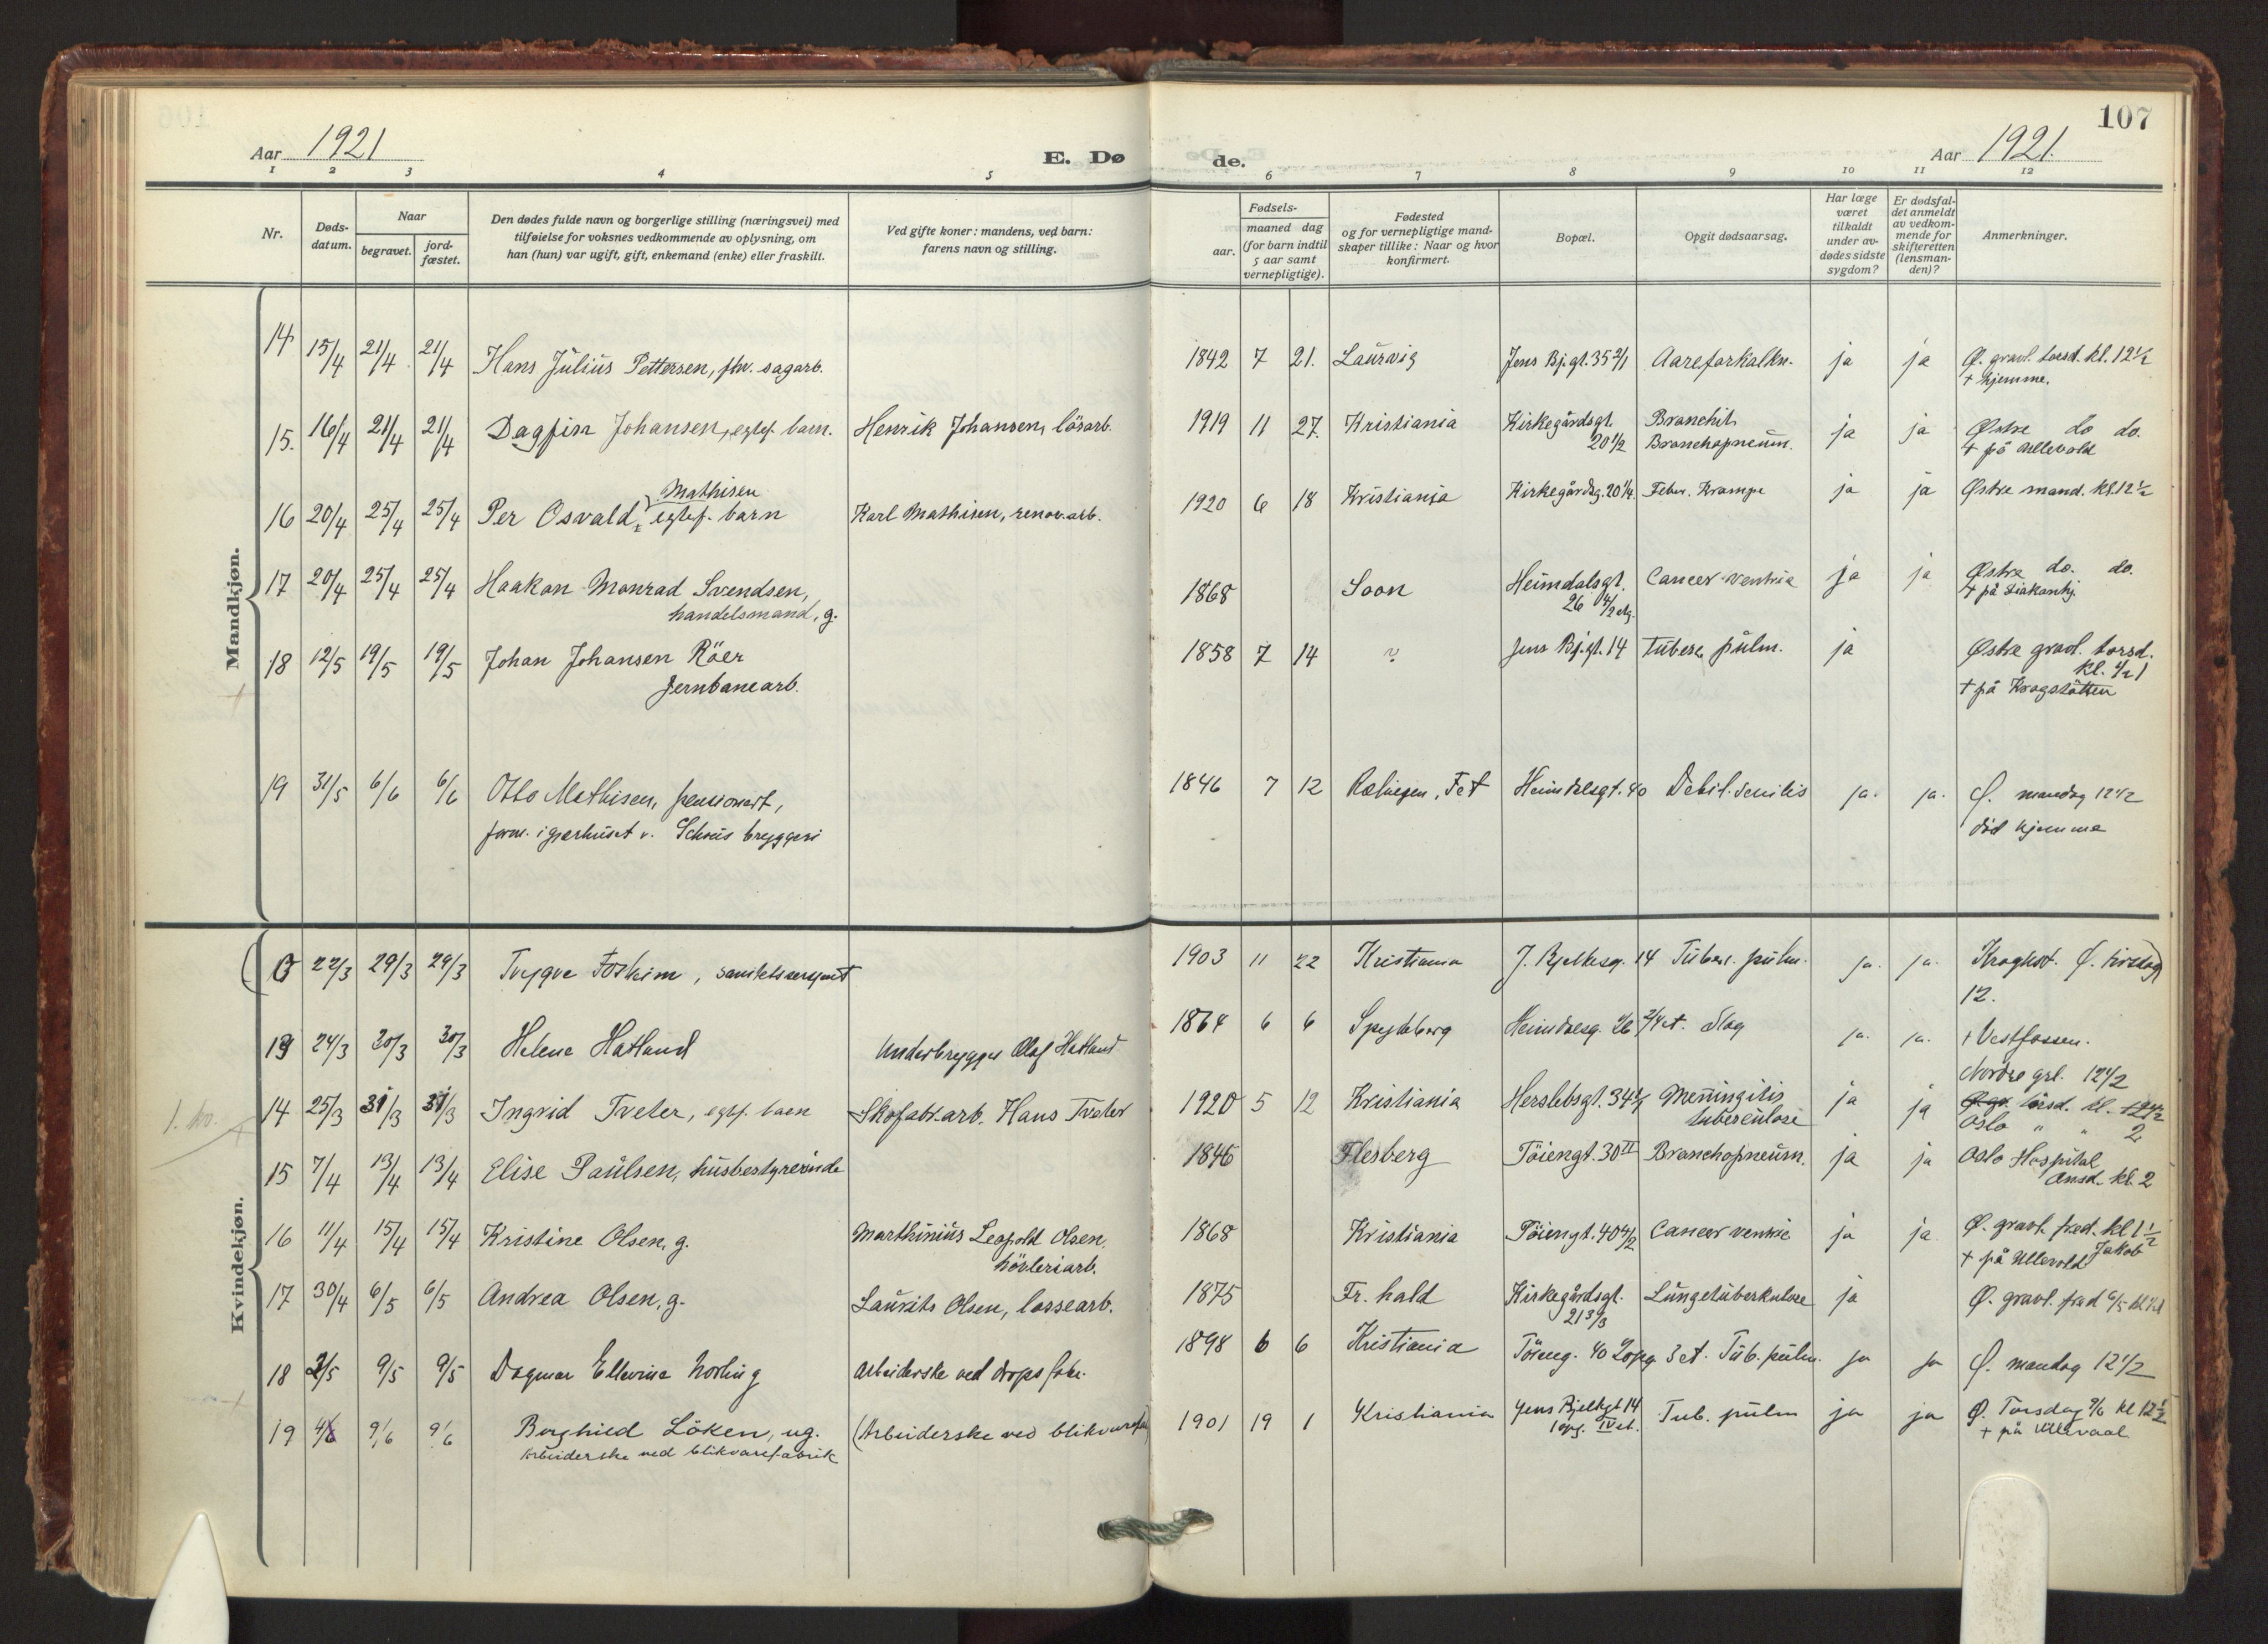 107
Aar 1921 E. Dø de. Aar 1921.
1 2 3 4 5 6 7 8 9 10 11 12
Nr.
Døds-
datum.
Naar
begravet.
jord-
fæstet.
Den dødes fulde navn og borgerlige stilling (næringsvei) med
tilføielse for voksnes vedkommende av oplysning, om
han (hun) var ugift, gift, enkemand (enke) eller fraskilt.
Ved gifte koner: mandens, ved barn:
farens navn og stilling.
Fødsels-
aar.
maaned dag
(for barn indtil
5 aar samt
vernepligtige).
Fødested
og for vernepligtige mand-
skaper tillike: Naar og hvor
konfirmert.
Bopæl.
Opgit dødsaarsag.
Har læge
været
tilkaldt
under av-
dødes sidste
sygdom?
Er dødsfal-
det anmeldt
av vedkom-
mende for
skifteretten
(lensman-
den)?
Anmerkninger.
Mandkjøn.
14 15/4 21/4 21/4 Hans Julius Pettersen, fhv. sagarb. 1842 7 21. Laurvig Jens Bj.gt. 35 2/1 Aareforkalkn. ja ja Ø. gravl. torsd. kl. 12 1/2
+ hjemme.
15. 16/4 21/4 21/4 Dagfinn Johansen, egtef. barn. Henrik Johansen, lösarb. 1919 11 27. Kristiania Kirkegårdsgt. 20 1/2 Bronchit,
Bronchopneum. ja ja Østre do do.
+ på Ullevold
16 20/4 25/4 25/4 Per Osvald Mathisen, egtef. barn Karl Mathisen, renov.arb. 1920 6 18 Kristiania Kirkegårdsg. 20 1/4. Feber. Krampe ja ja Østre mand. kl. 12 1/2
17 20/4 25/4 25/4 Haakon Monrad Svendsen,
handelsmand, g. 1868 Soon Heimdalsgt.
26 4/2 etg. Cancer ventria ja ja Østre do. do.
+ på Diakonhj.
18 12/5 19/5 19/5 Johan Johansen Röer
Jernbanearb. 1858 7 14 ? Jens Bj.gt. 14 Tuberc. pulm. ja Østre gravl. torsd.
kl. 1/2 1
+ på Krogstötten
19 31/5 6/6 6/6 Otto Mathisen, pensionert,
form. i gjærhuset v. Schous bryggeri 1846 7 12 Rælingen, Fet Heimdalsgt. 40 Debil. senilis ja. ja. Ø. mandag 12 1/2
död hjemme
Kvindekjøn.
22/3 29/3 29/3 Trygve Foskim, sanitetssersjant 1903 11 22 Kristiania J. Bjelkesg. 14 Tuberc. pulm. ja. ja. Kroghst. Ø. tirsdag
12.
13 24/3 30/3 30/3 Helene Hatland Underbrygger Olaf Hatland 1864 6 6 Spydeberg Heimdalsg. 26 2/4 et. Slag ja. ja. + Vestfossen.
Nordre grl. 12 1/2
1. kv.
14 25/3 31/3 31/3 Ingrid Tveter, egtef. barn Skofabr.arb. Hans Tveter 1920 5 12 Kristiania Herslebsgt. 34 Meningitis
tuberculose ja ja Ø. gr. torsd. kl. 12 1/2
Oslo " " 2
15 7/4 13/4 13/4 Elise Paulsen, husbestyrerinde 1846 Flesberg Töiengt. 30 II Bronchopneum. ja ja Oslo Hospital
onsd. kl. 2
16 11/4 15/4 15/4 Kristine Olsen, g. Marthinius Leopold Olsen
hövleriarb. 1868 Kristiania Töiengt. 40 4/2 Cancer ventric ja ja Ø. gravl. fred. kl 1 1/2
+ på Ullevold Jakob
17 30/4 6/5 6/5 Andrea Olsen, g. Laurits Olsen, lossearb. 1875 Fr. hald Kirkegårdsgt.
21 3/3 Lungetuberkulose ja Ø. gravl. fred 6/5 kl 1/2 1
18 2/5 9/5 9/5 Dagmar Ellevine Norling Arbeiderske ved dropsfabr. 1898 6 6 Kristiania Töieng. 40 2opg 3 et. Tub. pulm. ja ja Ø. mandag 12 1/2
19 4/6 9/6 9/6 Borghild Löken, ug.
Arbeiderske ved blikvarefabrik (Arbeiderske ved blikvarefabr) 1901 19 1 Kristiania Jens Bjelkgt 14
1 opg. IV et. Tub. pulm ja ja Ø. Torsdag 9/6 kl 12 1/2
+ på Ullevaal